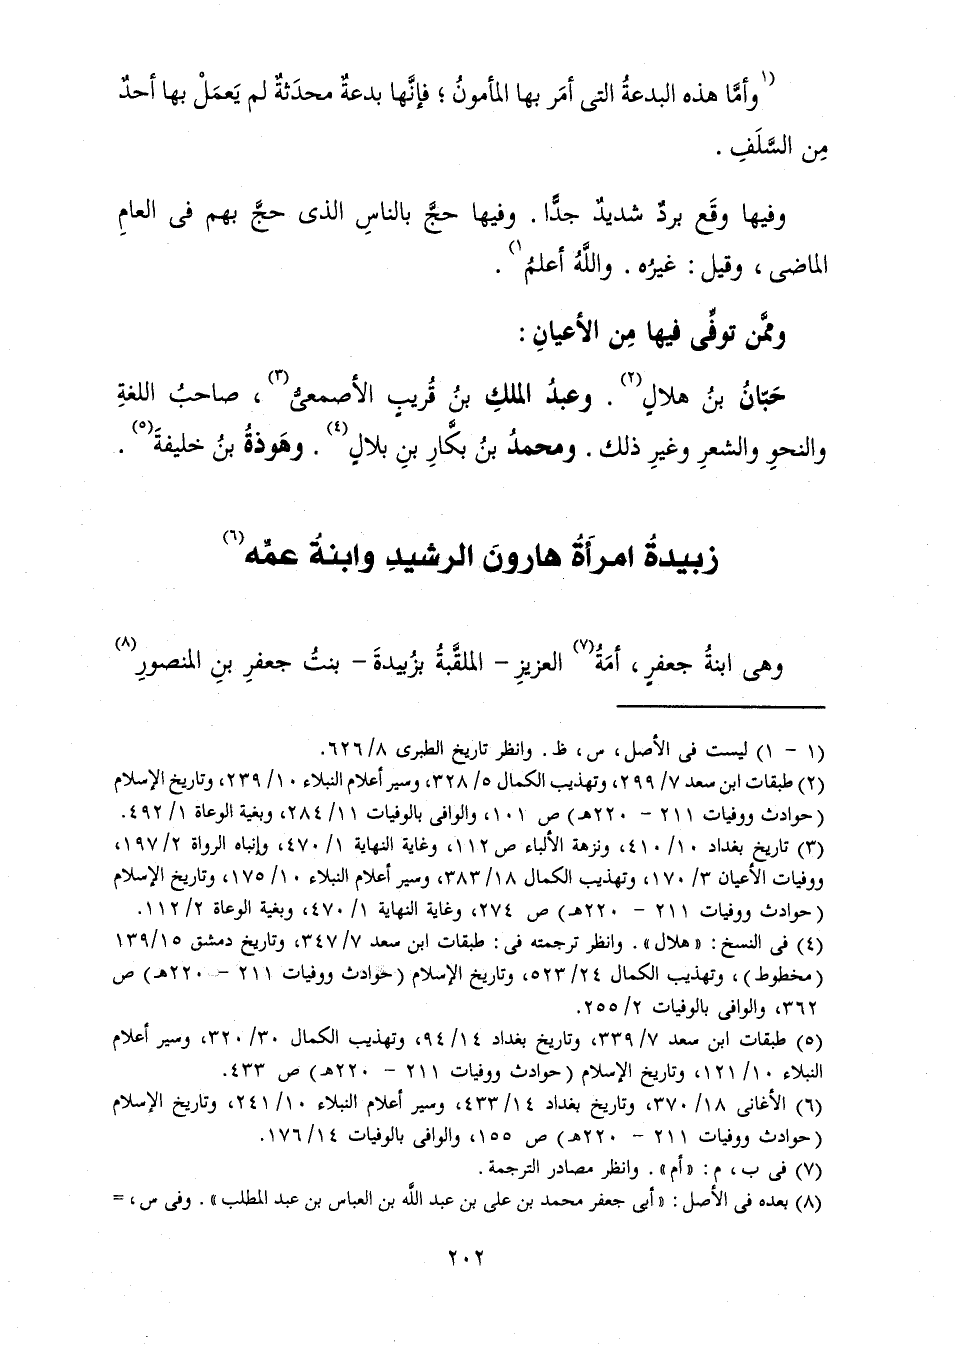 (١وأمَّا هذه البدعةُ التى أمَر بها المأمونُ ؛ فإنَّها بدعةٌ محدَثةٌ لم يَعمَلْ بها أحدٌ
مِن السَّلَفِ .
وفيها وقَع بردٌ شديدٌ جدًّا . وفيها حجَّ بالناسِ الذى حجَّ بهم فى العامِ
الماضى ، وقيل : غيرُه . واللَّهُ أعلمُ١) .
وممَّن توفِّى فيها مِن الأعيانِ :
حَبّانُ بنُ هلالٍ(٢) . وعبدُ الملكِ بنُ قُريبٍ الأصمعىُّ(٣) ، صاحبُ اللغةِ
والنحوِ والشعرِ وغيرِ ذلك . ومحمدُ بنُ بكَّارِ بنِ بلالٍ(٤) . وهَوذةُ بنُ خليفةَ(٥) .
زبيدةُ امرأةُ هارونَ الرشيدِ وابنةُ عمِّه(٦)
وهى ابنةُ جعفرٍ ، أمَةُ(٧) العزيزِ - الملقَّبةُ بزُبيدةَ - بنتُ جعفرِ بنِ المنصورِ(٨)
(١ - ١) ليست فى الأصل ، س ، ظ . وانظر تاريخ الطبرى ٦٢٦/٨.
(٢) طبقات ابن سعد ٢٩٩/٧، وتهذيب الكمال ٣٢٨/٥، وسير أعلام النبلاء ٢٣٩/١٠، وتاريخ الإسلام
(حوادث ووفيات ٢١١ - ٢٢٠هـ) ص ١٠١، والوافى بالوفيات ٢٨٤/١١، وبغية الوعاة ٤٩٢/١.
(٣) تاريخ بغداد ٤١٠/١٠، ونزهة الألباء ص ١١٢، وغاية النهاية ٤٧٠/١، وإنباه الرواة ١٩٧/٢،
ووفيات الأعيان ١٧٠/٣، وتهذيب الكمال ٣٨٣/١٨، وسير أعلام النبلاء ١٧٥/١٠، وتاريخ الإسلام
(حوادث ووفيات ٢١١ - ٢٢٠هـ) ص ٢٧٤، وغاية النهاية ٤٧٠/١، وبغية الوعاة ١١٢/٢.
(٤) فى النسخ : «هلال» . وانظر ترجمته فى : طبقات ابن سعد ٣٤٧/٧، وتاريخ دمشق ١٣٩/١٥
(مخطوط) ، وتهذيب الكمال ٥٢٣/٢٤، وتاريخ الإسلام (حوادث ووفيات ٢١١ - ٢٢٠هـ) ص
٣٦٢، والوافى بالوفيات ٢٥٥/٢.
(٥) طبقات ابن سعد ٣٣٩/٧، وتاريخ بغداد ٩٤/١٤، وتهذيب الكمال ٣٢٠/٣٠، وسير أعلام
النبلاء ١٢١/١٠، وتاريخ الإسلام (حوادث ووفيات ٢١١ - ٢٢٠هـ) ص ٤٣٣.
(٦) الأغانى ٣٧٠/١٨، وتاريخ بغداد ٤٣٣/١٤، وسير أعلام النبلاء ٢٤١/١٠، وتاريخ الإسلام
(حوادث ووفيات ٢١١ - ٢٢٠هـ) ص ١٥٥، والوافى بالوفيات ١٧٦/١٤.
(٧) فى ب ، م : «أم» . وانظر مصادر الترجمة .
(٨) بعده فى الأصل : «أبى جعفر محمد بن على بن عبد اللَّه بن العباس بن عبد المطلب» . وفى س ، =
٢٠٢